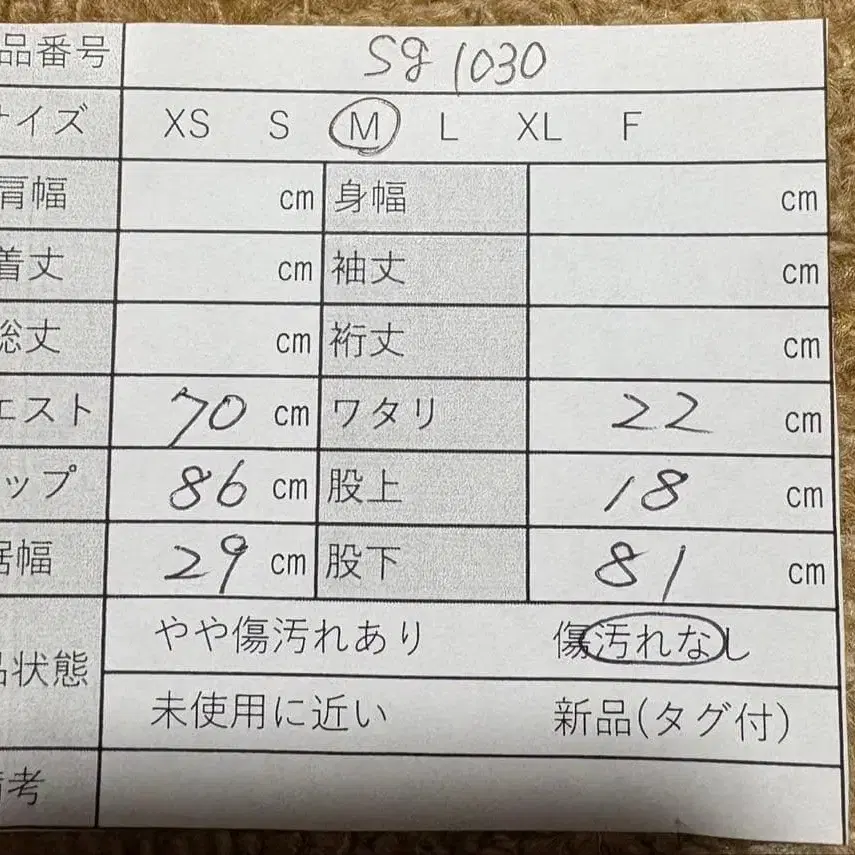 品番号 Sg1030
サイズ XS S M L XL F
肩幅 cm 身幅 cm
着丈 cm 袖丈 cm
総丈 cm 裄丈 cm
エスト 70 cm ワタリ 22 cm
ップ 86 cm 股上 18 cm
裾幅 29 cm 股下 81 cm
品状態 やや傷汚れあり 傷汚れなし
未使用に近い 新品(タグ付)
備考